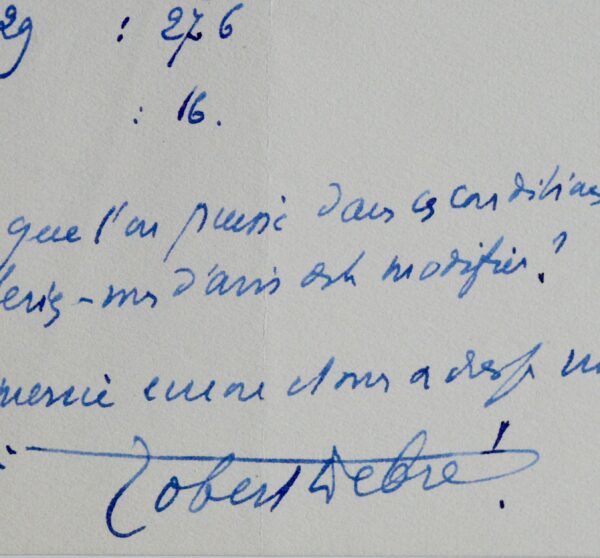 29 : 276
: 16.
que l'on puisse dans ces conditions
-vous d'avis de le modifier ?
encore et vous adresse
Robert Debré